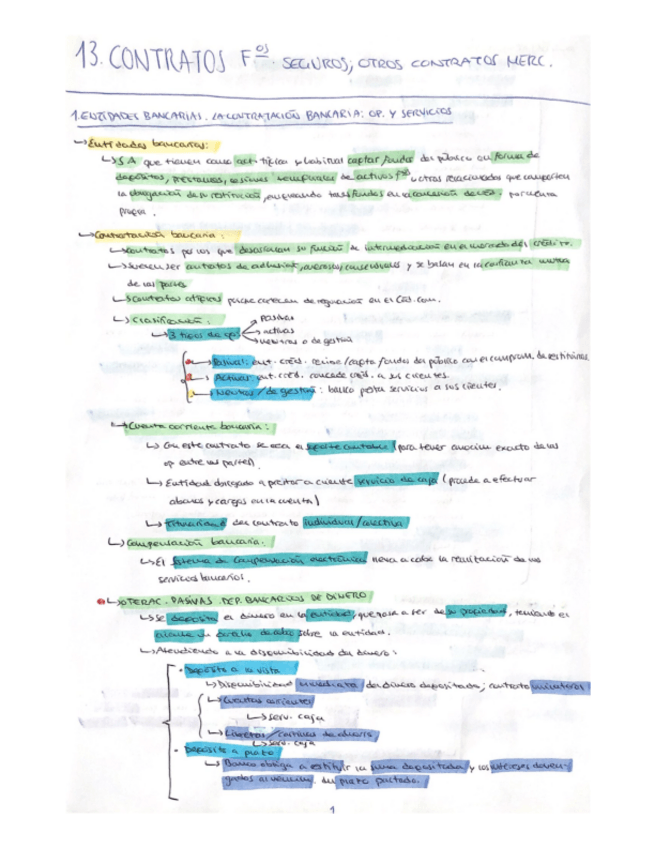 13. CONTRATOS F.ºˢ SEGUROS, OTROS CONTRATOS MERC.
1. ENTIDADES BANCARIAS. LA CONTRATACIÓN BANCARIA: OP. Y SERVICIOS
↳ Entidades bancarias:
↳ S.A que tienen como act. típica y habitual captar fondos del público en forma de
depósitos, préstamos, cesiones temporales de activos fºˢ u otros relacionados que comporten
la obligación de su restitución, empleando tales fondos en la concesión de por cuenta
propia.
↳ Contratación bancaria:
↳ contratos por los que desarrollan su función de intermediación en el mercado del crédito.
↳ Suelen ser contratos de adhesión, onerosos, consensuales y se basan en la confianza mutua
de las partes
↳ contratos atípicos porque carecen de regulación en el Cód. com.
↳ Clasificación:
↳ 3 tipos de op.
pasivas
activas
neutras o de gestión
↳ Pasivas: ent. créd. recibe/capta fondos del público con el comprom. de restituirlos
↳ Activas: ent. créd. concede créd. a sus clientes.
↳ Neutras/de gestión: banco presta servicios a sus clientes.
↳ Cuenta corriente bancaria:
↳ Con este contrato se crea el soporte contable (para tener conocim exacto de las
op entre las partes)
↳ Entidad obligada a prestar a cliente servicio de caja (procede a efectuar
abonos y cargos en la cuenta)
↳ Titularidad del contrato individual/colectiva
↳ Compensación bancaria.
↳ El Sistema de Compensación electrónica lleva a cabo la realización de los
servicios bancarios.
↳ OPERAC. PASIVAS. DEP. BANCARIOS DE DINERO
↳ Se deposita el dinero en la entidad, que pasa a ser de su propiedad, teniendo el
cliente un derecho de crédito sobre la entidad.
↳ Atendiendo a la disponibilidad del dinero:
• Depósito a la vista
↳ Disponibilidad inmediata del dinero depositado; contrato unilateral
↳ Cuentas corrientes
↳ serv. caja
↳ Libretas/cartillas de ahorro
↳ serv. caja
• Depósito a plazo
↳ Banco obliga a restituir la suma depositada y los intereses deven-
gados al vencim. del plazo pactado.
1